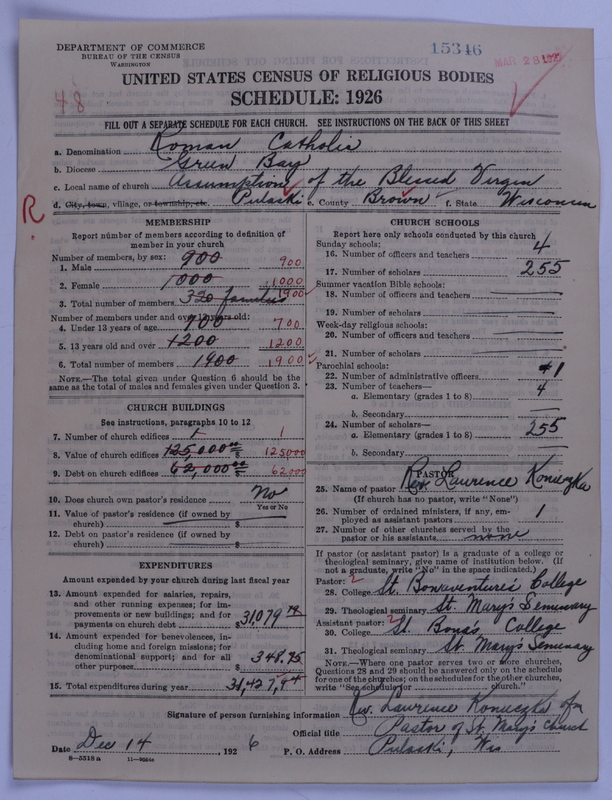 DEPARTMENT OF COMMERCE
BUREAU OF THE CENSUS
WASHINGTON
15346
MAR 23 1927
UNITED STATES CENSUS OF RELIGIOUS BODIES
48
SCHEDULE: 1926
FILL OUT A SEPARATE SCHEDULE FOR EACH CHURCH. SEE INSTRUCTIONS ON THE BACK OF THIS SHEET
a. Denomination Roman Catholic
b. Diocese Green Bay
c. Local name of church Assumption of the Blessed Virgin
R
d. City, town, village, or township, etc. Pulaski e. County Brown f. State Wisconsin
MEMBERSHIP
Report number of members according to definition of member in your church
Number of members, by sex:
1. Male 900 900
2. Female 1000 1000
3. Total number of members 320 families 1900
Number of members under and over 13 years old:
4. Under 13 years of age 700 700
5. 13 years old and over 1200 1200
6. Total number of members 1900 1900
NOTE.—The total given under Question 6 should be the same as the total of males and females given under Question 3.
CHURCH BUILDINGS
See instructions, paragraphs 10 to 12
7. Number of church edifices 1 1
8. Value of church edifices $ 125,000 00 125000
9. Debt on church edifices $ 62,000 00 62000
10. Does church own pastor's residence No
Yes or No
11. Value of pastor's residence (if owned by church) $
12. Debt on pastor's residence (if owned by church) $
EXPENDITURES
Amount expended by your church during last fiscal year
13. Amount expended for salaries, repairs, and other running expenses; for improvements or new buildings; and for payments on church debt $31,079
14. Amount expended for benevolences, including home and foreign missions; for denominational support; and for all other purposes $ 348.95
15. Total expenditures during year
CHURCH SCHOOLS
Report here only schools conducted by this church
Sunday schools:
16. Number of officers and teachers 4
17. Number of scholars 255
Summer vacation Bible schools:
18. Number of officers and teachers
19. Number of scholars
Week-day religious schools:
20. Number of officers and teachers
21. Number of scholars
Parochial schools:
22. Number of administrative officers 1
23. Number of teachers—
a. Elementary (grades 1 to 8) 4
b. Secondary
24. Number of scholars—
a. Elementary (grades 1 to 8) 255
b. Secondary
PASTOR
25. Name of pastor Rev. Lawrence Konieczka
(If church has no pastor, write "None")
26. Number of ordained ministers, if any, employed as assistant pastors 1
27. Number of other churches served by the pastor or his assistants none
If pastor (or assistant pastor) is a graduate of a college or theological seminary, give name of institution below. (If not a graduate, write "No" in the space indicated.)
Pastor: 2
28. College St. Bonaventure's College
29. Theological seminary St. Mary's Seminary
Assistant pastor: 2
30. College St. Bona's College
31. Theological seminary St. Mary's Seminary
NOTE.—Where one pastor serves two or more churches, Questions 28 and 29 should be answered only on the schedule for one of the churches; on the schedules for the other churches, write "See schedule for church."
Signature of person furnishing information Rev. Lawrence Konieczka ofm
Official title Pastor of St. Mary's Church
Date Dec 14, 1926 P. O. Address Pulaski, Wis
8—5518 a